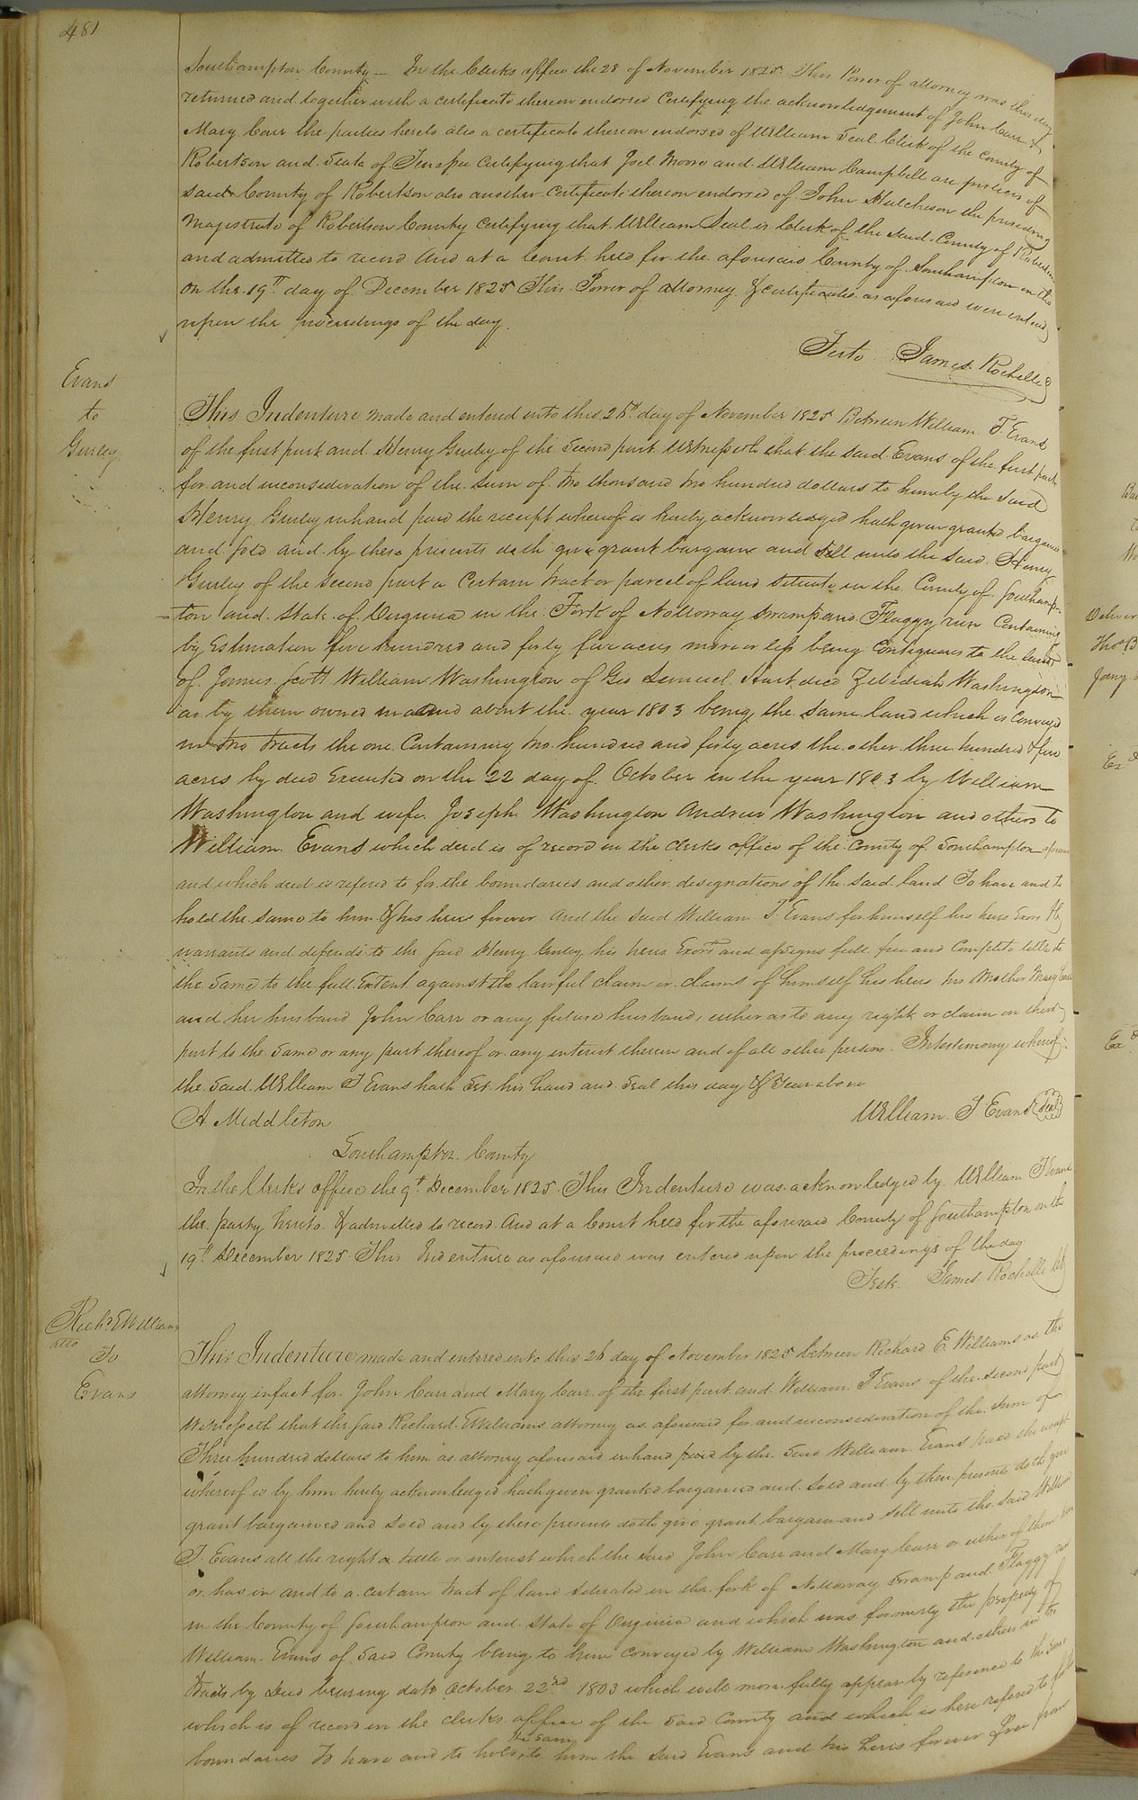 481
Southampton County — In the Clerks office the 28 of November 1825 This Power of attorney was this day
returned and together with a certificate thereon endorsed Certifying the acknowledgement of John Carr &
Mary Carr the parties hereto also a certificate thereon endorsed of William Seal Clerk of the County of
Robertson and State of certifying that Joel Moore and William Campbell are justices of
said County of Robertson also another Certificate thereon endorsed of John Hutcheson the presiding
Magistrate of Robertson County Certifying that William Seal is Clerk of the said County of Robertson
and admitted to record And at a Court held for the aforesaid County of Southampton on the
on the 19th day of December 1825 This Power of attorney & certificates as aforesaid were entered
upon the proceedings of the day.
Teste James Rochelle
Evans
to
Gurley
This Indenture made and entered into this 26th day of November 1825 Between William T Evans
of the first part and Henry Gurley of the Second part Witnesseth that the said Evans of the first part
for and inconsideration of the Sum of two thousand two hundred dollars to him by the said
Henry Gurley inhand paid the receipt whereof is hereby acknowledged hath given granted bargained
and sold and by these presents doth give grant bargain and sell unto the said Henry
Gurley of the Second part a Certain tract or parcel of land Situate in the County of Southamp-
ton and State of Virginia in the Fork of Nottoway swamp and Flaggy run Containing
by Estimation five hundred and forty five acres more or less being Contiguous to the lands
of James Scott William Washington of Geo Lemuel Hart decd Zebediah Washington
as by them owned in and about the year 1803 being the same land which is Conveyed
in two tracts the one Containing two hundred and forty acres the other three hundred & five
acres by deed Executed on the 22 day of October in the year 1803 by William
Washington and wife Joseph Washington Andrew Washington and others to
William Evans which deed is of record in the clerks office of the County of Southampton
and which deed is refered to for the boundaries and other designations of the said land To have and to
hold the same to him & his heirs forever And the said William T Evans for himself his heirs Exors &c
warrants and defends to the said Henry Gurley his heirs Exors and assigns full free and Complete title to
the same to the full Extent against the lawful claim or claims of himself his heirs his Mother Mary Carr
and her husband John Carr or any future husband, either as to any right or claim on their
part to the same or any part thereof or any interest therein and of all other persons. Intestimony whereof
the said William T Evans hath Set his hand and Seal this day & Year above
A Middleton
William T Evans Seal
Southampton County
In the Clerks office the 9th December 1825 This Indenture was acknowledged by William T Evans
the party hereto & admitted to record And at a Court held for the aforesaid County of Southampton on the
19th December 1825 This Indenture as aforesaid was entered upon the proceedings of the day
Teste James Rochelle Clk
Richd E Williams
atto
To
Evans
This Indenture made and entered into this 26 day of November 1825 between Richard E. Williams as the
attorney infact for John Carr and Mary Carr of the first part and William T Evans of the second part
Witnesseth that the said Richard E Williams attorney as aforesaid for and inconsideration of the sum of
Three hundred dollars to him as attorney aforesaid inhand paid by the said William Evans paid the receipt
whereof is by him hereby acknowledged hath given granted bargained and sold and by these presents doth give
grant bargained and sold and by these presents doth give grant bargain and sell unto the said William
T. Evans all the right & tittle or interest which the said John Carr and Mary Carr or either of them
or has in and to a certain tract of land situated in the fork of Nottoway swamp and Flaggy run
in the County of Southampton and State of Virginia and which was formerly the property of
William Evans of said County being to him Conveyed by William Washington and others in two
tracts by Deed bearing date October 22nd 1803 which will more fully appear by reference to the same
which is of record in the clerks office of the said County and which is here refered to for
boundaries To have and to hold the same to him the said Evans and his heirs forever free from